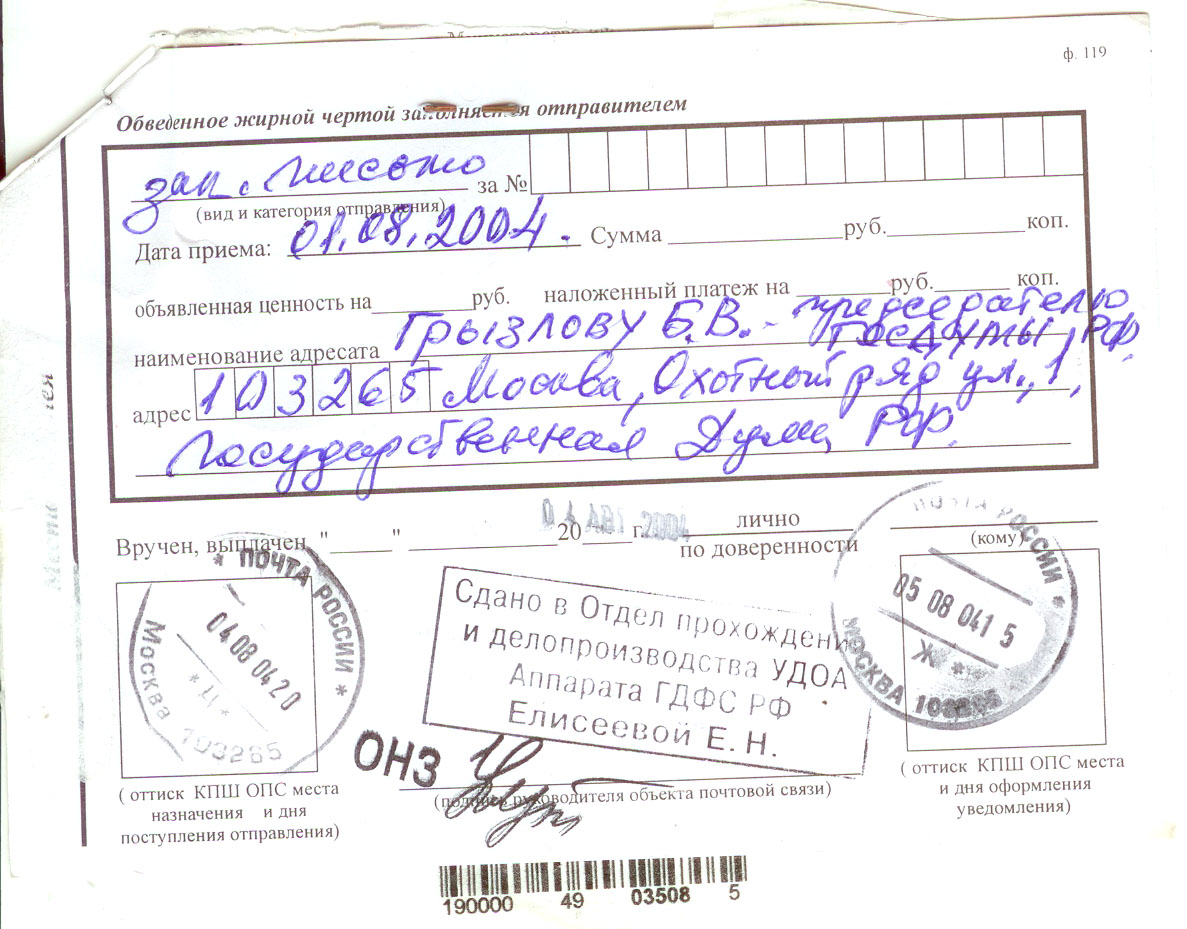 ф. 119
Обведенное жирной чертой заполняется отправителем
зак. письмо за №
(вид и категория отправления)
Дата приема: 01.08.2004. Сумма руб. коп.
объявленная ценность на руб. наложенный платеж на руб. коп.
наименование адресата Грызлову Б.В. - председателю
Госдумы РФ
адрес 103265 Москва, Охотный ряд ул., 1,
Государственная Дума РФ.
Вручен, выплачен " " 20 г. лично
04 АВГ 2004
по доверенности
(кому)
* ПОЧТА РОССИИ *
04 08 04 20
* Ц *
Москва 103265
Сдано в Отдел прохождени
и делопроизводства УДОА
Аппарата ГДФС РФ
Елисеевой Е. Н.
ПОЧТА РОССИИ *
05 08 041 5
Ж **
МОСКВА 103265
ОНЗ
(подпись руководителя объекта почтовой связи)
( оттиск КПШ ОПС места
назначения и дня
поступления отправления)
( оттиск КПШ ОПС места
и дня оформления
уведомления)
190000 49 03508 5